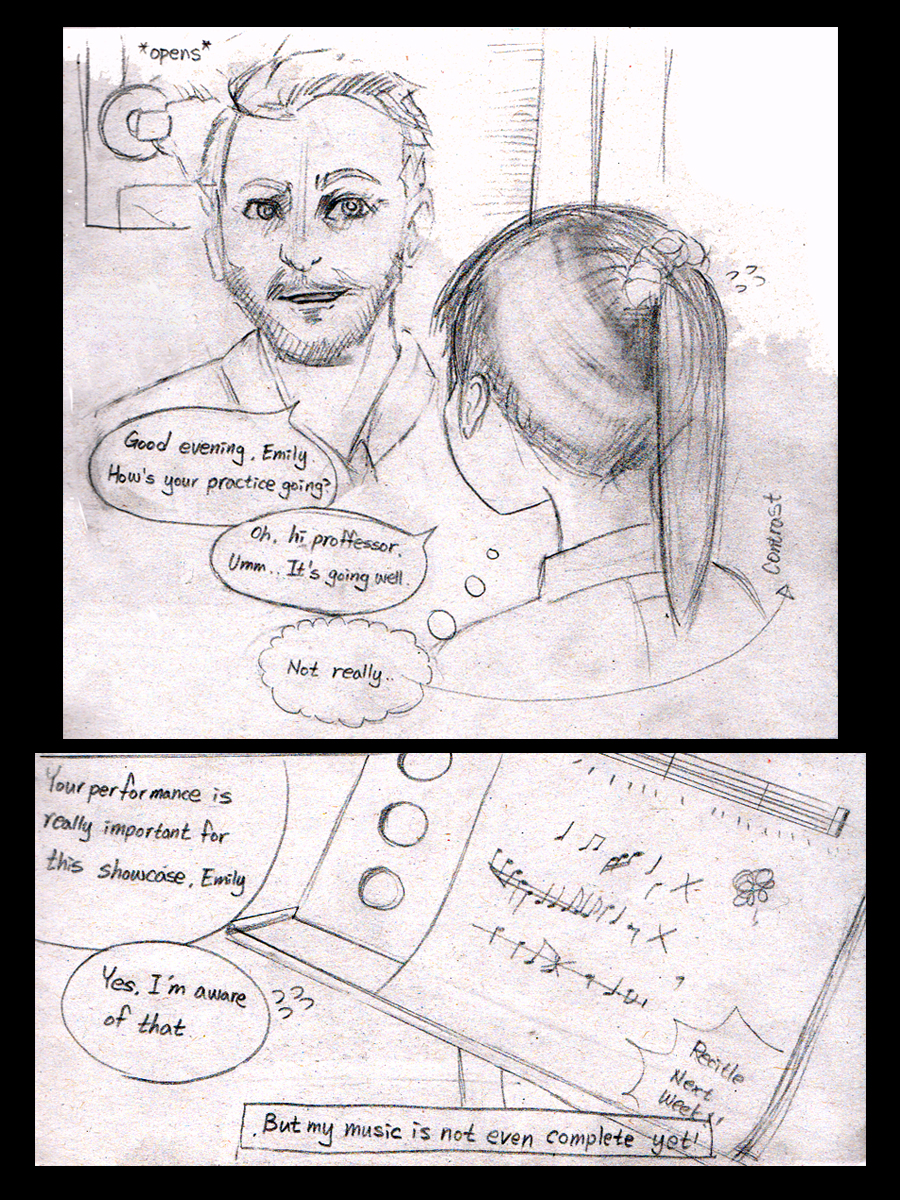 *opens*
Good evening, Emily
How's your practice going?
Oh, hi proffessor.
Umm.. It's going well.
Not really..
Contrast
Your performance is
really important for
this showcase, Emily
Yes, I'm aware
of that
Recitle
Next
Week!!
But my music is not even complete yet!